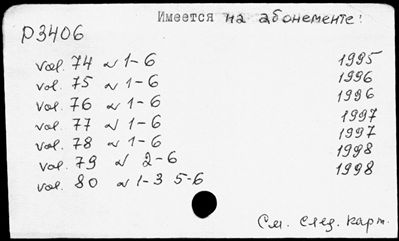 Имеется на абонементе!
D3406
vol. 74 N 1-6 1995
vol. 75 N 1-6 1996
vol. 76 N 1-6 1996
vol. 77 N 1-6 1997
vol. 78 N 1-6 1997
vol. 79 N 2-6 1998
vol. 80 N 1-3 5-6 1998
См. след. карт.